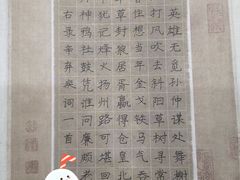 英雄无觅孙仲谋处舞榭
打风吹去斜阳草树寻常
想当年金戈铁马气吞
草封狼居胥赢得仓皇北
犹记烽火扬州路可堪
神鸦社鼓凭谁问廉颇老
右录辛弃疾词一首